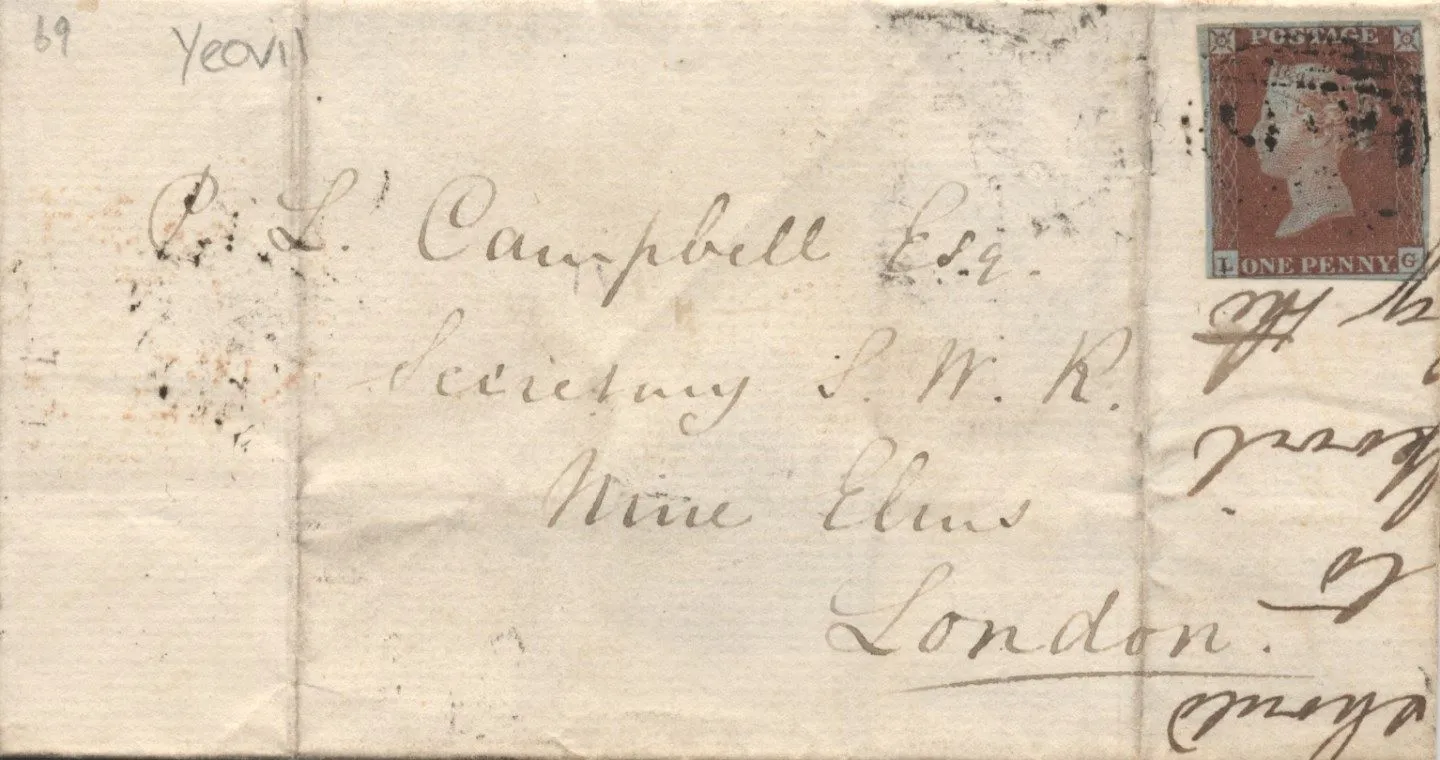 69
Yeovil
POSTAGE
ONE PENNY.
G
P. L. Campbell Esq.
Secretary S. W. R.
Nine Elms
London.
the
to
should